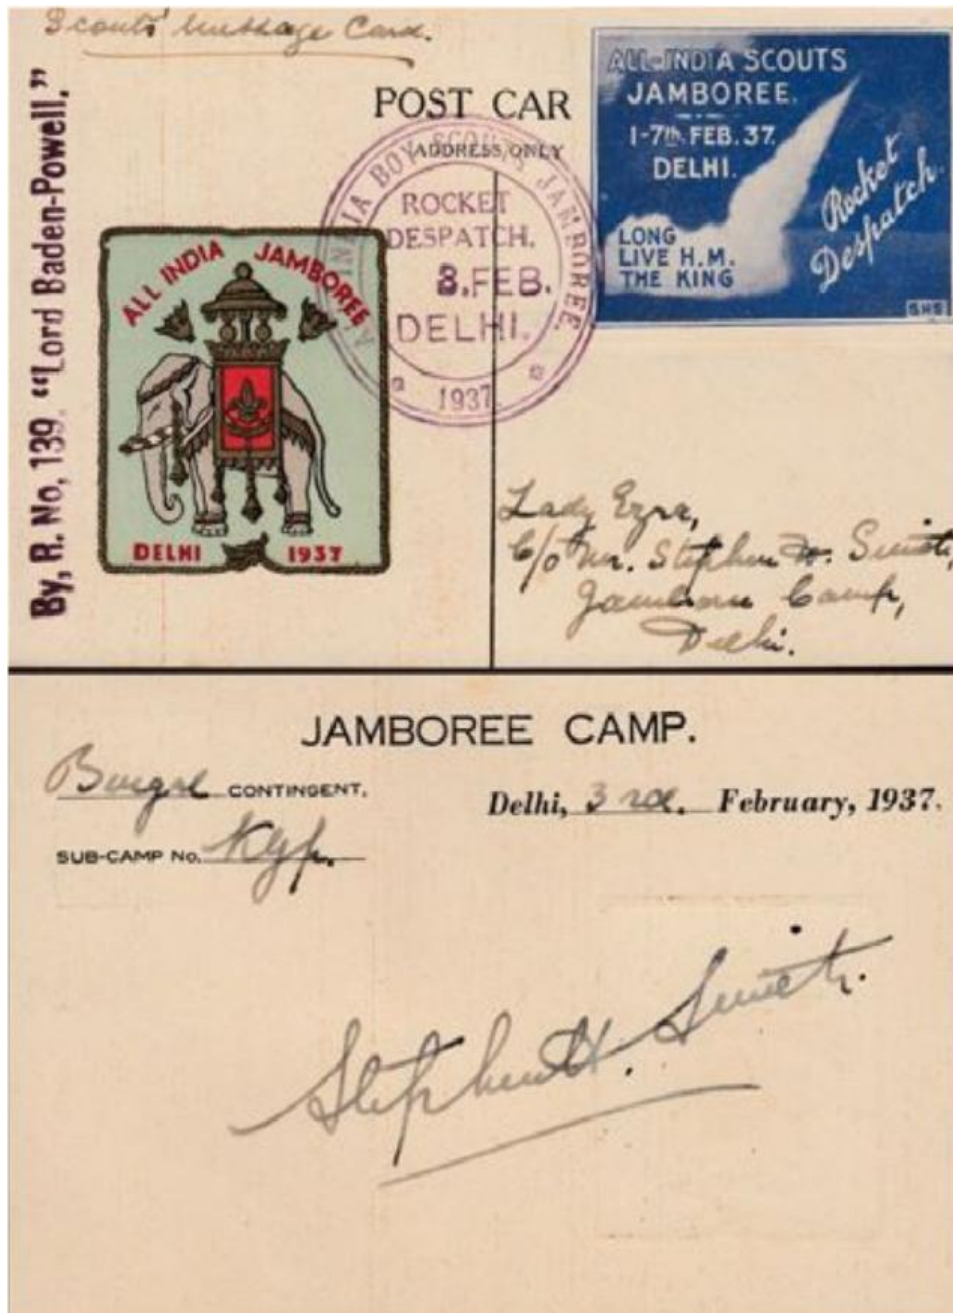 Scouts' Message Card.
By, R. No, 139. "Lord Baden-Powell."
POST CAR
ADDRESS ONLY
ALL-INDIA SCOUTS
JAMBOREE.
1-7th. FEB. 37.
DELHI.
LONG
LIVE H.M.
THE KING
Rocket
Despatch.
SHS
INDIA BOY SCOUTS JAMBOREE.
ROCKET
DESPATCH.
3.FEB.
DELHI.
1937
ALL INDIA JAMBOREE
DELHI 1937
Lady Ezra,
C/o Mr. Stephen H. Smith,
Jamboree Camp,
Delhi.
JAMBOREE CAMP.
Bengal CONTINGENT.
Delhi, 3rd. February, 1937.
SUB-CAMP No.
Stephen H. Smith.